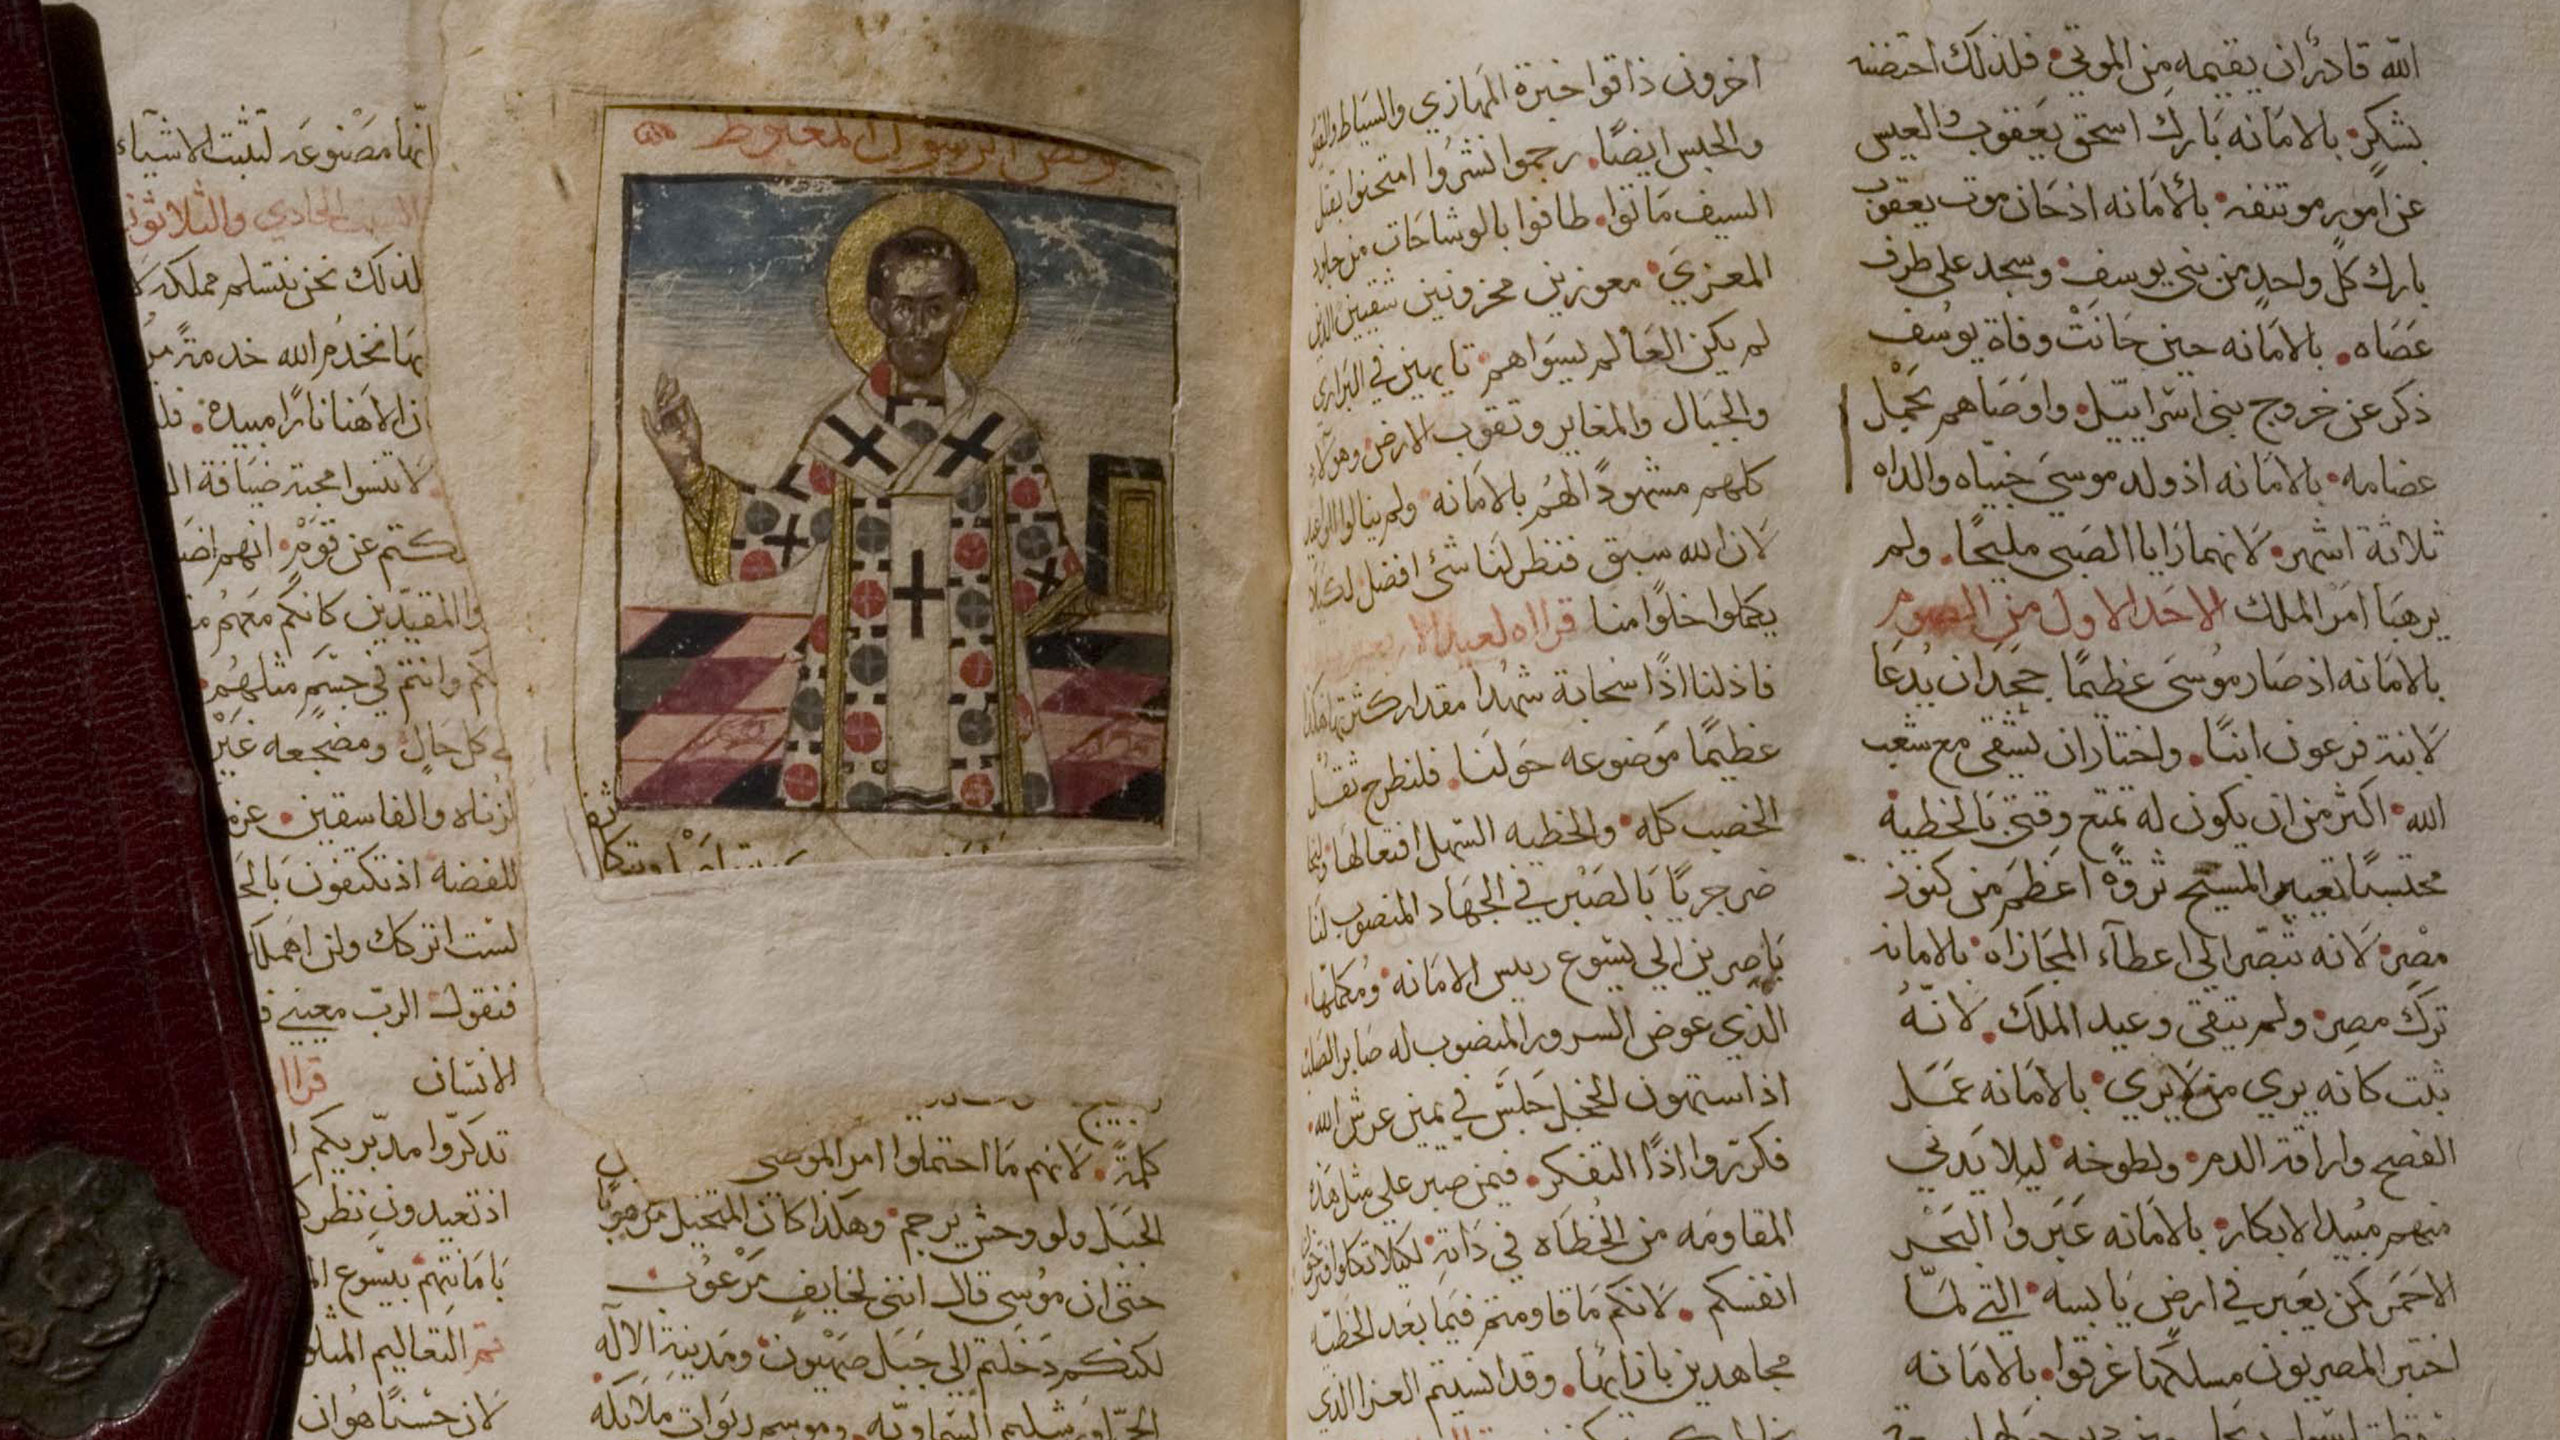 الله قادر ان يقيمه من الموتي فلذلك احتضنه
بشكر بالامانه بارك اسحق يعقوب والعيس
عن امور موتنفه بالامانه اذ حان موت يعقوب
بارك كل واحد من بني يوسف وسجد علي طرف
عصاه بالامانه حين حانت وفاة يوسف
ذكر عن خروج بني اسراييل واوصاهم بحمل
عضامه بالامانه اذ ولد موسي خبياه والداه
ثلاثة اشهر لانهما رايا الصبي مليحا ولم
يرهبا امر الملك الاحد الاول من الصوم
بالامانه اذ صار موسى عظيما جحد ان يدعا
لابنة فرعون ابنا واختار ان يشقي مع شعب
الله اكثر من ان يكون له تمتع وقتي بالخطية
محتسبا تعيير المسيح ثروة اعظم من كنوز
مصر لانه تبصر الي اعطاء المجازاه بالامانه
ترك مصر ولم يتقي وعيد الملك لانه
ثبت كانه يري من لا يري بالامانه عمل
الفصح واراقة الدم ولطوخه ليلا يدني
منهم مبيد الابكار بالامانه عبروا البحر
الاحمر كمن يعبر في ارض يابسه التي لما
اختبر المصريون مسلكها غرقوا بالامانه
اخرون ذاقوا خبرة المهازي والسياط
والحبس ايضا رجموا نشروا امتحنوا بقتل
السيف ماتوا طافوا بالوشاحات من جلود
المعزي معوزين محزونين شقيين الذين
لم يكن العالم ليسواهم تايهين في البراري
والجبال والمغاير وثقوب الارض وهولاء
كلهم مشهودا لهم بالامانه ولم ينالوا الوعد
لان الله سبق فنظر لنا شي افضل لكيلا
يكملوا خلوا منا قراه لعيد الاربعين
فاذ لنا اذا سحابة شهدا مقدار كثرتها هكذا
عظيما موضوعه حولنا فلنطرح ثقل
الخصب كله والخطيه السهل افتعالها
ضر جريا بالصبر في الجهاد المنصوب لنا
باصرين الي يسوع رييس الامانه ومكملها
الذي عوض السرور المنصوب له صابر الصلب
اذ استهون الخجل جلس في يمين عرش الله
فكرروا اذا التفكر فيمن صبر علي مثل هذه
المقاومه من الخطاه في ذاته لكيلا تكلوا
انفسكم لانكم ما قاومتم فيما بعد الخطيه
مجاهدين بازايها وقد انسيتم العزا الذي
بولص الرسول المغبوط
كلمة لانهم ما احتملوا امر الموصي
الجبل ولو وحش يرجم وهكذا كان المتخيل مرهوبا
حتي ان موسي قال انني لخايف مرعوب
لكنكم دخلتم الي جبل صهيون ومدينة الاله
الحي اورشليم السماويه وموسم ربوات ملايكه
انها مصنوعه لتثبت الاشياء
السبت الحادي والثلاثون
لذلك نحن نتسلم مملكه لا
بها نخدم الله خدمة
ان الاهنا نارا مبيدة
لا تنسوا محبة ضيافة
عن قوم انهم
والمقيدين كانكم معهم
وانتم في جسم مثلهم
كل حال ومضجعه غير
لزناه والفاسقين
للفضه اذ تكتفون
لست اتركك ولن اهملك
فنقول الرب معيني
الانسان
تذكروا مدبريكم
بامانتهم يسوع
تم التعاليم
لان حسنا هو ان